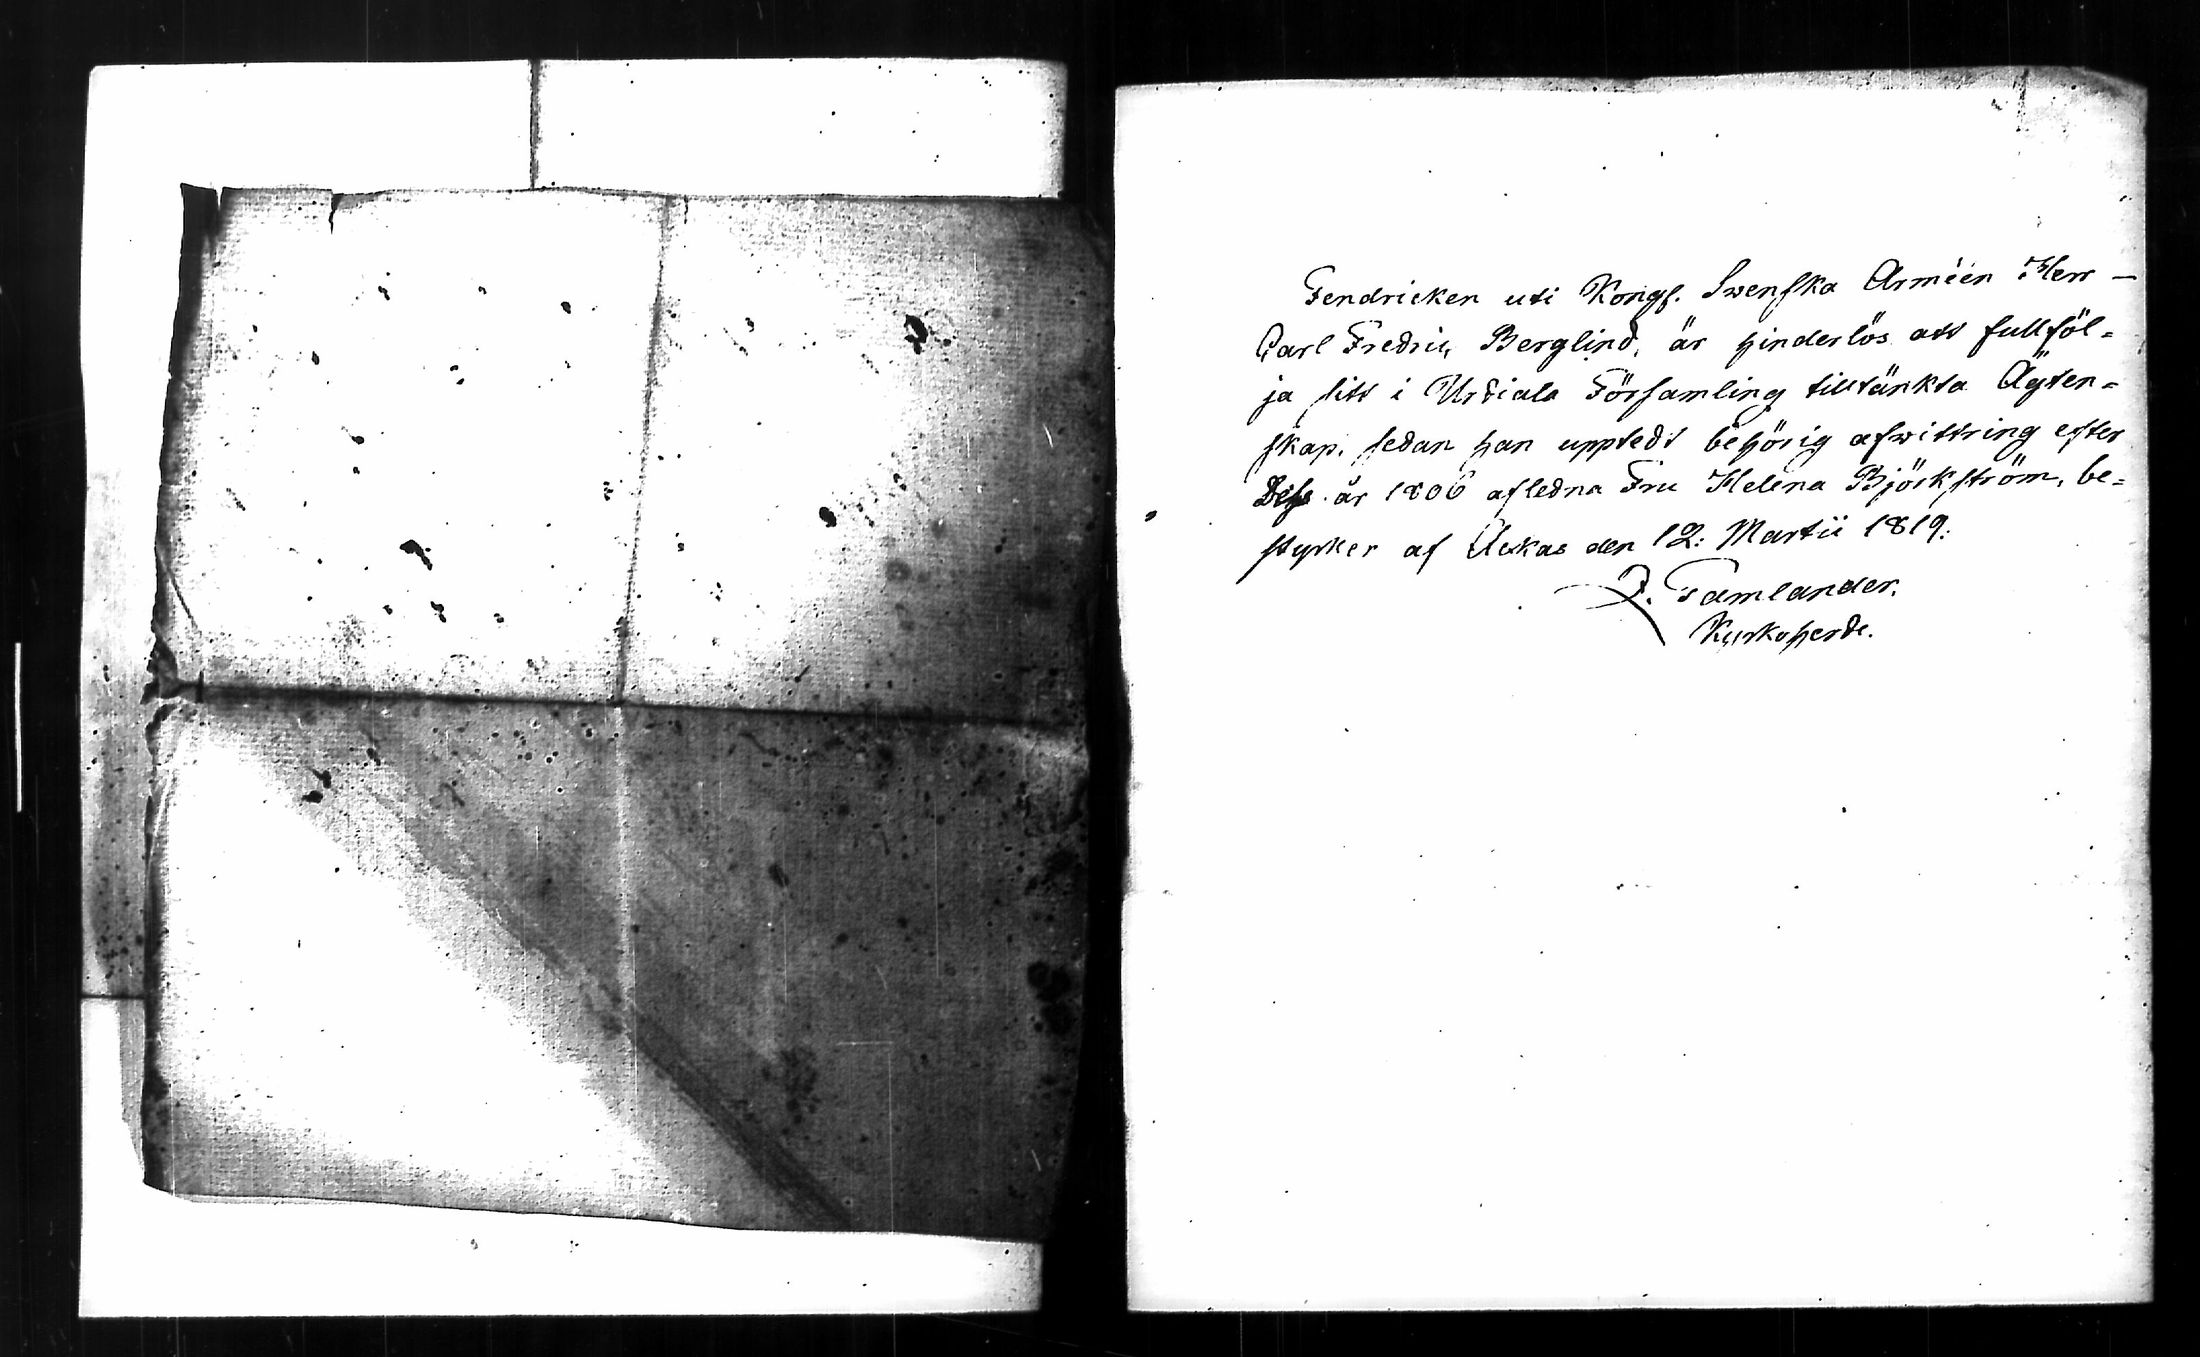 Fendricken uti Kongl. Swenska Arméen Herr —
Carl Fredric Berglind, är hinderlös att fullföl=
ja sitt i Urdiala Församling tilltänkta Ägten=
skap, sedan han upptedt behörig afwittring efter
Dess år 1806 afledna Fru Helena Björkström, be=
styrker af Ackas den 12: Martii 1819.
Tamlander.
Kyrkoherde.